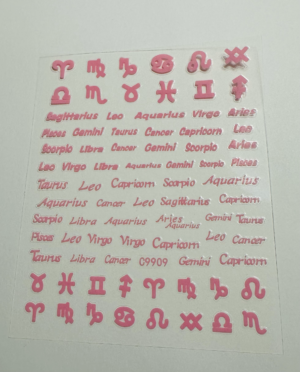 ♈ ♍ ♑ ♋ ♌ ♒
♎ ♏ ♉ ♓ ♊ ♐
Sagittarius Leo Aquarius Virgo Aries
Pisces Gemini Taurus Cancer Capricorn Leo
Scorpio Libra Cancer Gemini Scorpio Aries
Leo Virgo Libra Aquarius Gemini Scorpio Pisces
Taurus Leo Capricorn Scorpio Aquarius
Aquarius Cancer Leo Sagittarius Capricorn
Scorpio Libra Aquarius Aries Aquarius Gemini Taurus
Pisces Leo Virgo Virgo Capricorn Leo Cancer
Taurus Libra Cancer C9909 Gemini Capricorn
♉ ♓ ♊ ♐ ♈ ♍ ♑ ♌
♈ ♍ ♑ ♋ ♌ ♒ ♎ ♏